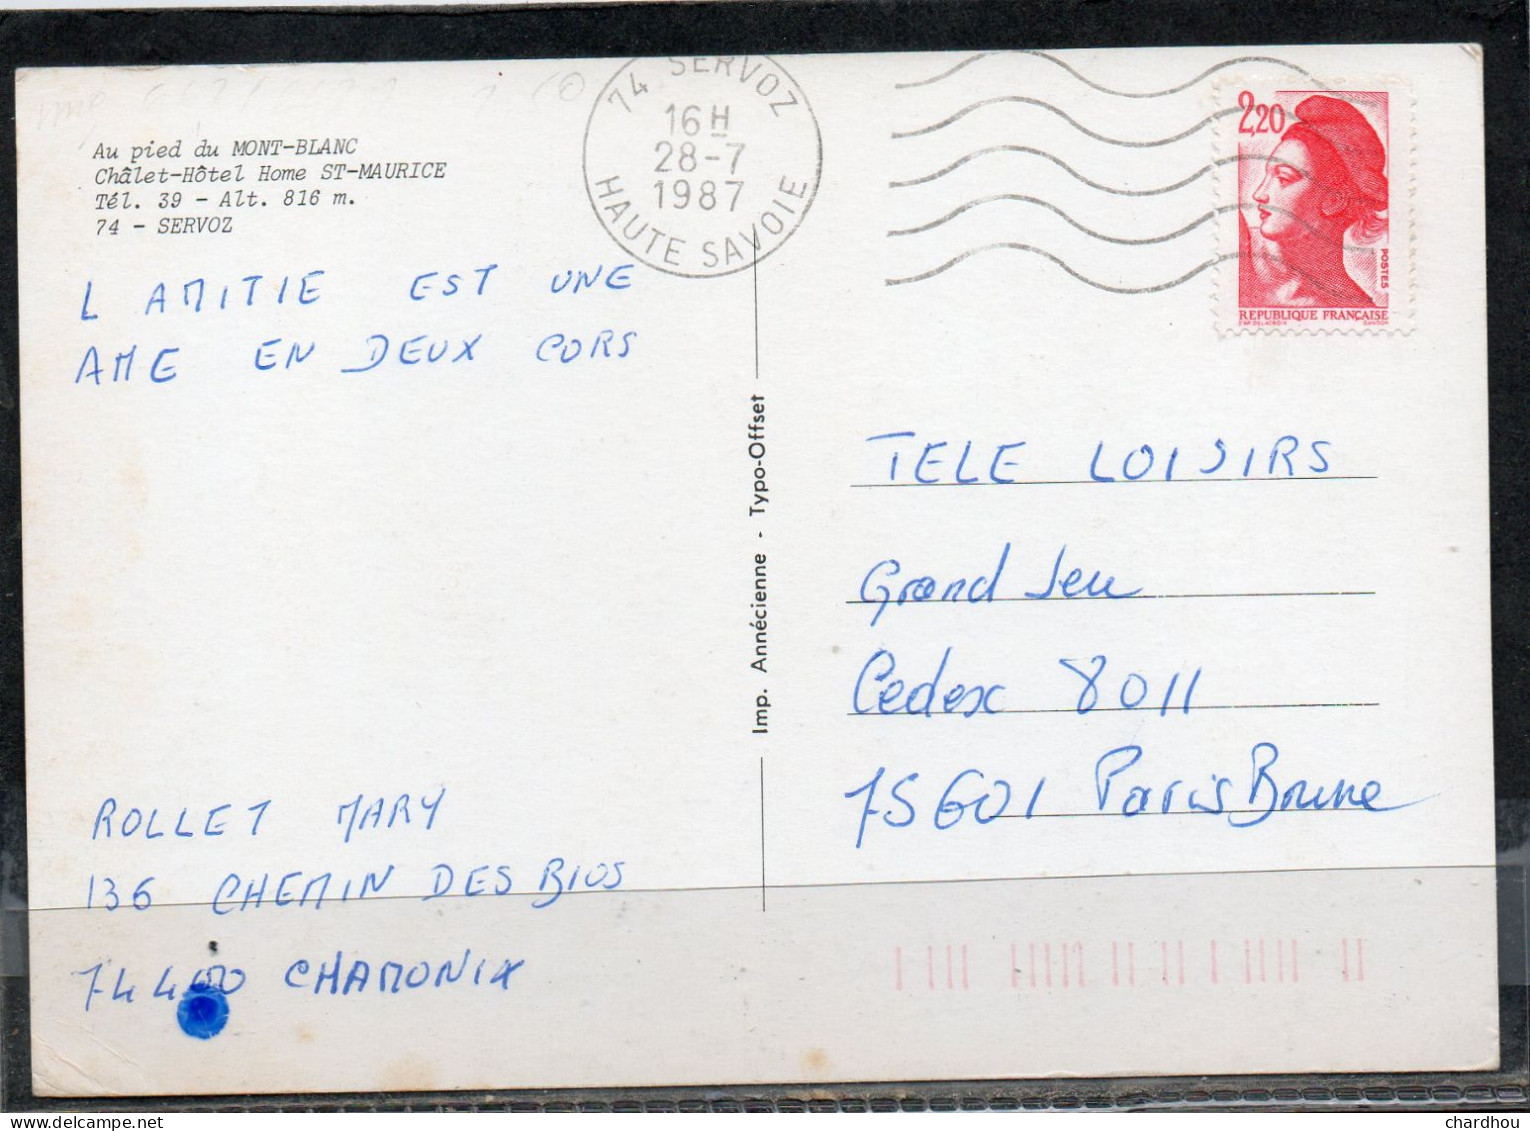 Au pied du MONT-BLANC
Châlet-Hôtel Home ST-MAURICE
Tél. 39 - Alt. 816 m.
74 - SERVOZ
74 SERVOZ
16 H
28-7
1987
HAUTE SAVOIE
2,20
POSTES
REPUBLIQUE FRANÇAISE
L AMITIE EST UNE
AME EN DEUX CORS
Imp. Annécienne - Typo-Offset
TELE LOISIRS
Grand Jeu
Cedex 8011
75601 Paris Brune
ROLLET MARY
136 CHEMIN DES BIOS
74400 CHAMONIX
chardhou